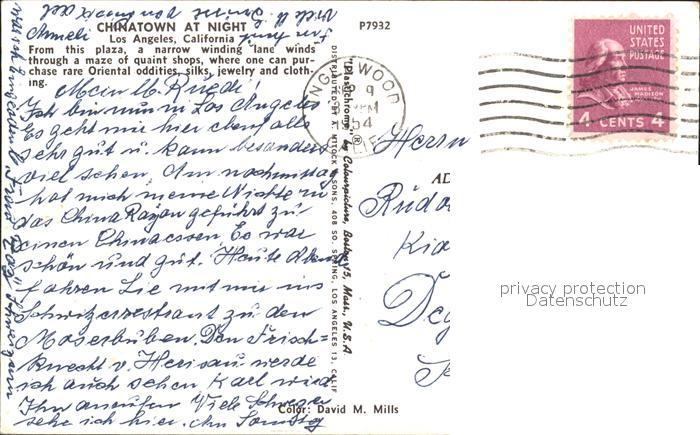 CHINATOWN AT NIGHT
Los Angeles, California
From this plaza, a narrow winding lane winds
through a maze of quaint shops, where one can pur-
chase rare Oriental oddities, silks, jewelry and cloth-
ing.
P7932
Mein l. Ruedi!
Ich bin nun in Los Angeles
Es geht mir hier ebenfalls
sehr gut u. kann besonders
viel sehen. Am nachmittag
hat mich meine Nichte in
das China geführt zu
einen Chinaessen. Es war
schön und gut. Heute Abend
fahren Sie mit mir ins
Schweizerrestaurant zu den
Moserbuben. Den Frisch-
knecht v. Herisau werde
ich auch sehen Karl wird
Ihn anrufen Viele Schweizer
sehe ich hier. Am Samstag
Viele
Anneli
DISTRIBUTED BY A. MITOCK & SONS, 408 SO. SPRING, LOS ANGELES 13, CALIF.
"Plastichrome" ® by Colourpicture, Boston 15, Mass., U.S.A.
Color: David M. Mills
INGLEWOOD
9
PM
1954
CALIF.
UNITED
STATES
POSTAGE
JAMES
MADISON
4 CENTS 4
Herrn
AD
Rudo
Kia
Deg
privacy protection
Datenschutz